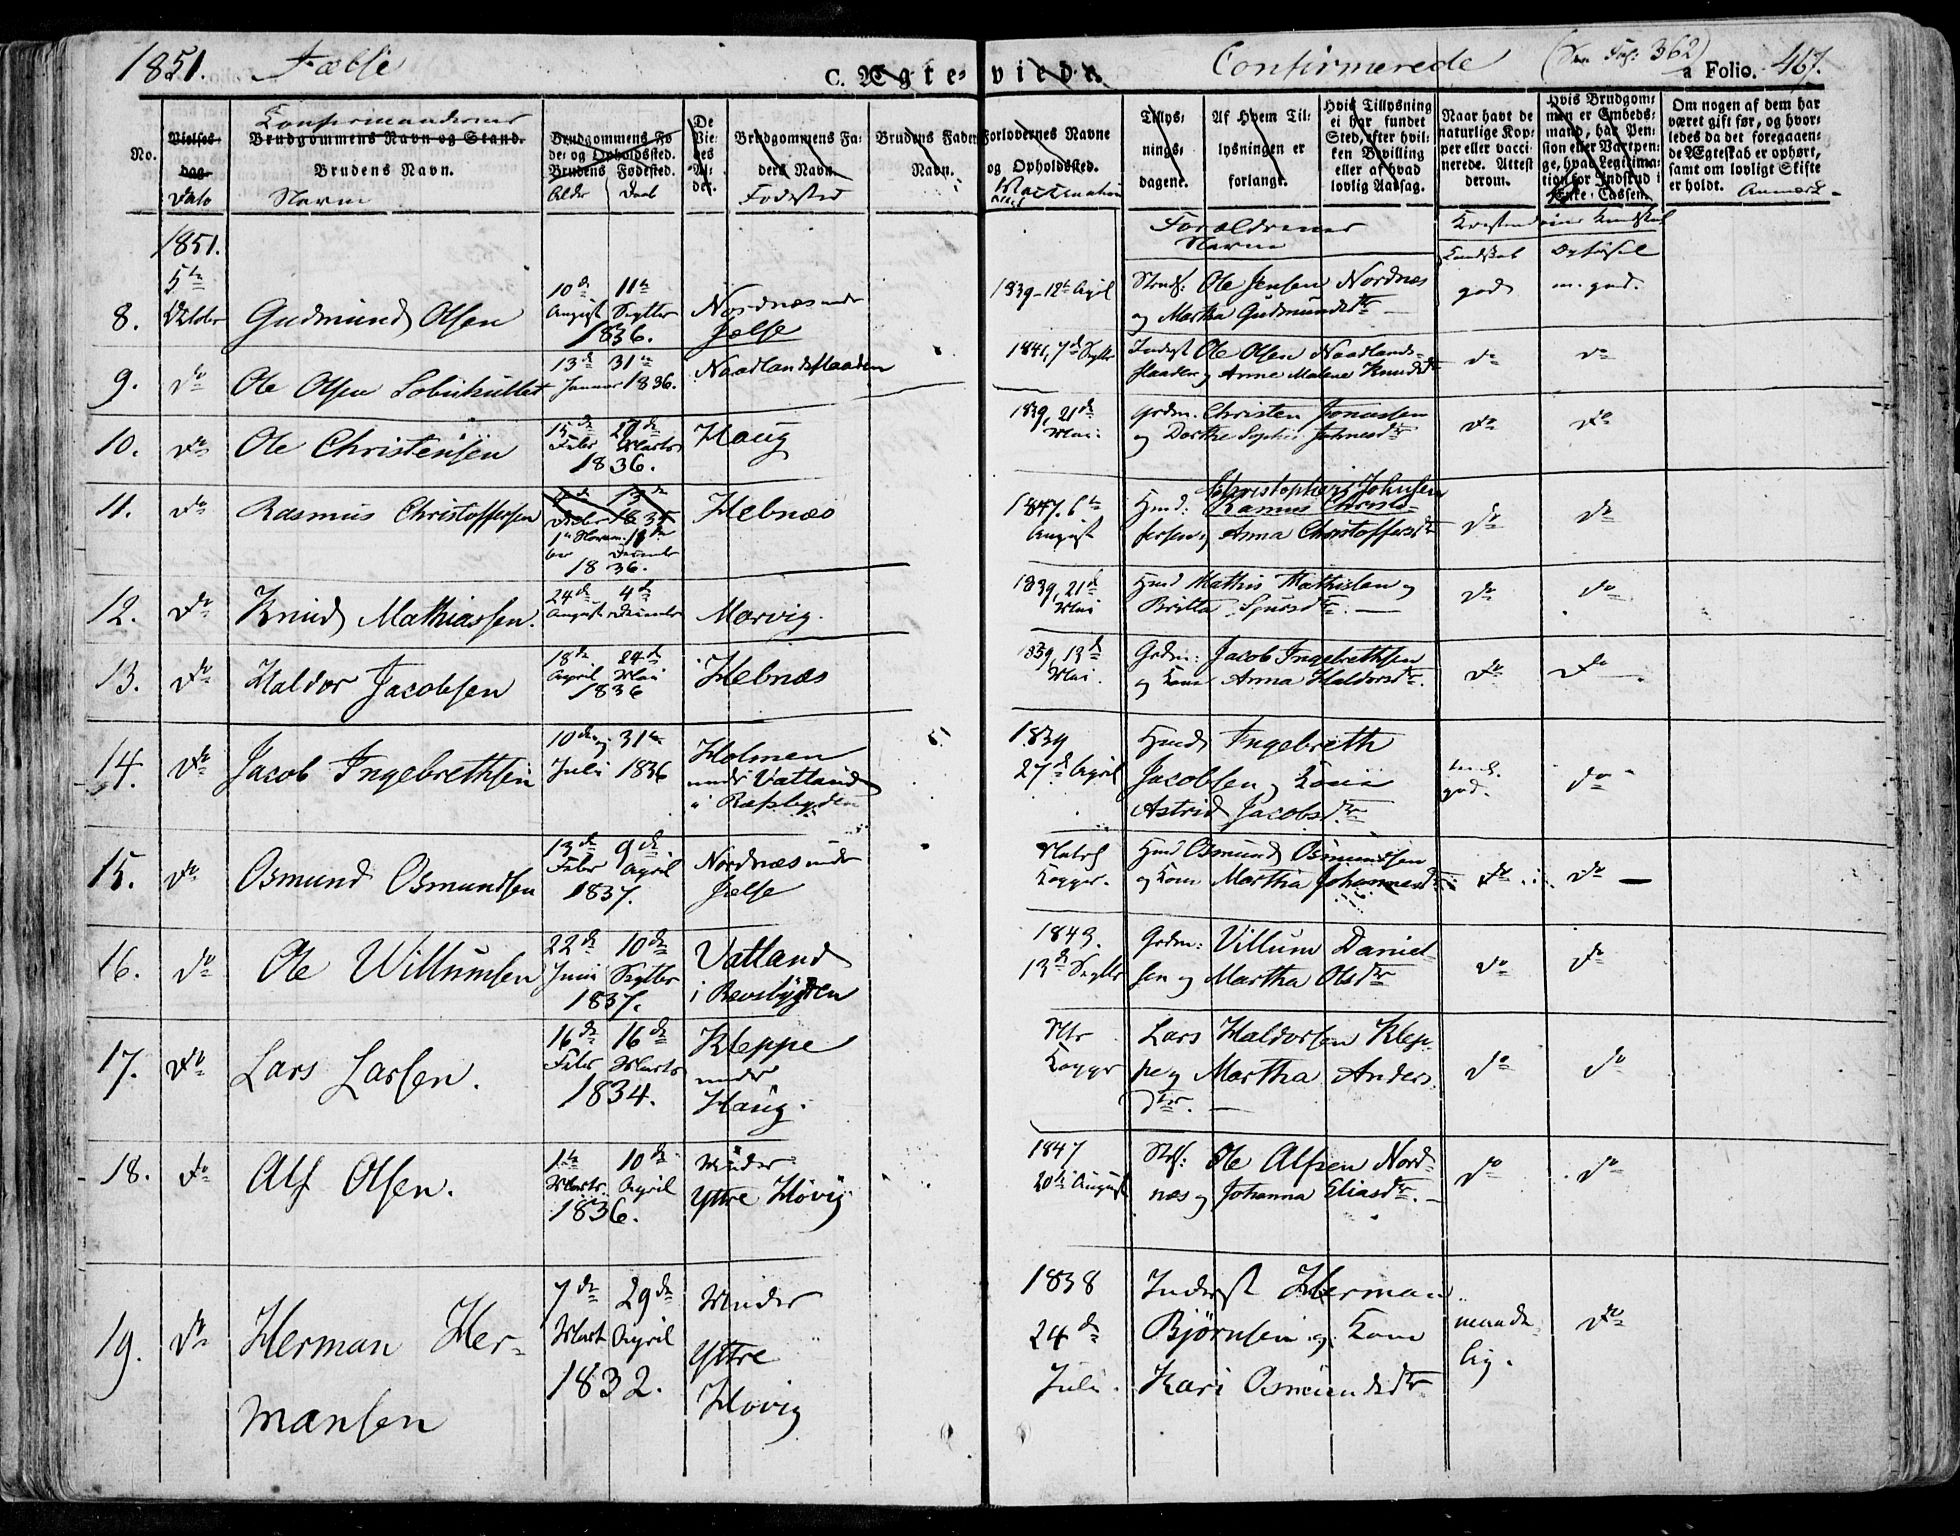 1851. Jælse C. Ægte-viede. Confirmerede (Fol: 362) a Folio. 467.
No.
Vielses-dag
Dato
Confirmandernes
Brudgommens Navn og Stand.
Brudens Navn.
Navn
Brudgommens Fø-
de- og Opholdssted.
Brudens Fødested.
Alder Daab
De Vie-des Al-der.
Brudgommens Fa-
ders Navn.
Fødested
Brudens Faders
Navn.
Forlovernes Navne
og Opholdssted.
Vaccination
Tillys-
nings-
dagene.
Af Hvem Til-
lysningen er
forlangt.
Hvis Tillysning
ei har fundet
Sted, efter hvil-
ken Bevilling
eller af hvad
lovlig Aarsag.
Forældrenes
Navne
Naar havt de
naturlige Kop-
per eller vacci-
nerede. Attest
derom.
Hvis Brudgom-
men er Embeds-
mand, har Pen-
sion eller Vartpen-
ge, hvad Legitima-
tion for Indskud i
Enke-Cassen.
Kundskab
Om nogen af dem har
været gift før, og hvor-
ledes da det foregaaen-
de Ægteskab er ophørt,
samt om lovligt Skifte
er holdt. Anmærk-
1851.
5te
8. Octbr Gudmund Olsen 10de August 11te Septbr 1836. Nordnæs under Jælse 1839-12te April Strds: Ole Jensen Nordnæs
og Martha Gudmundsdtr god m. god.
9. do Ole Olsen 13de Januar 31te 1836. Naadlandsflaaden 1841, 7de Septbr Inderst Ole Olsen Naadlands-
flaaden og Anne Malene Knudsdtr do do
10. do Ole Christensen 15de Febr 27de Marts 1836. Haug 1839, 21de Mai Grdm. Christen Jonassen
og Dorthe Sophie Johnesdtr do do
11. do Rasmus Christoffersen 1te Novem-ber 18de December 1836. Hebnæs 1847. 6te August Hmd: Christopher Johnsen
Rasmus Christof-
fersen og Anna Christoffersdtr do do
12. do Knud Mathiassen. 24de August 4de December Marvig. 1839, 21de Mai Hmd Mathis Mathislen og
Britta Sjursdtr. do do
13. do Haldor Jacobsen 18de April 24de Mai 1836 Hebnæs 1839, 13de Mai. Grdm: Jacob Ingebrethsen
og Kone Anna Haldorsdtr. do do
14. do Jacob Ingebrethsen 10de og 31te Juli 1836 Holmen
under Vatland
i 1839
27de April Hmd Ingebreth
Jacobsen og Kone
Astrid Jacobsdtr. god. do
15. do Osmund Osmundsen 13de Febr 9de April 1837. Nordnæs under
Jælse Natrl
Kopper. Hmd Osmund Osmundsen
og Kone Martha Johannesdtr. do do
16. do Ole Willumsen 22de Juni 10de Septbr 1837. Vatland
i Røvsbygden 1843.
13de Septbr Grdm: Villum Daniel-
sen og Martha Olsdtr do do
17. do Lars Larsen. 16de Febr 16de Marts 1834. Kleppe
under
Haug. Ntr
Kopper Lars Haldorsen Klep-
pe og Martha Anders
dtr. do do
18. do Alf Olsen. 1te Marts 10de April 1836. Under
Yttre Høvig 1847
20te August Ole Alfsen Nord-
næs og Johanna Eliasdtr. do do
19. do Herman Her-
mansen 7de Mart 29de April 1832. Under
Yttre
Høvig 1838
24de
Juli. Inderst Herman
Bjørnsen og Kone
Kari Osmundsdtr maade-
lig. do